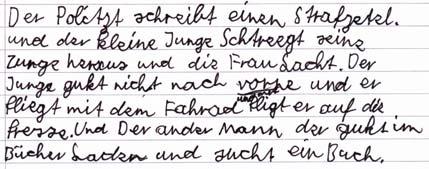 Der Politzt schreibt einen Strafzetel.
und der kleine Junge Schtreegt seine
Zunge heraus und die Frau Lacht. Der
Junge gukt nicht nach vorne und er
fliegt mit dem Fahrad und fligt er auf die
Fresse. Und Der ander Mann der gukt im
Bücher Laden und sucht ein Buch.